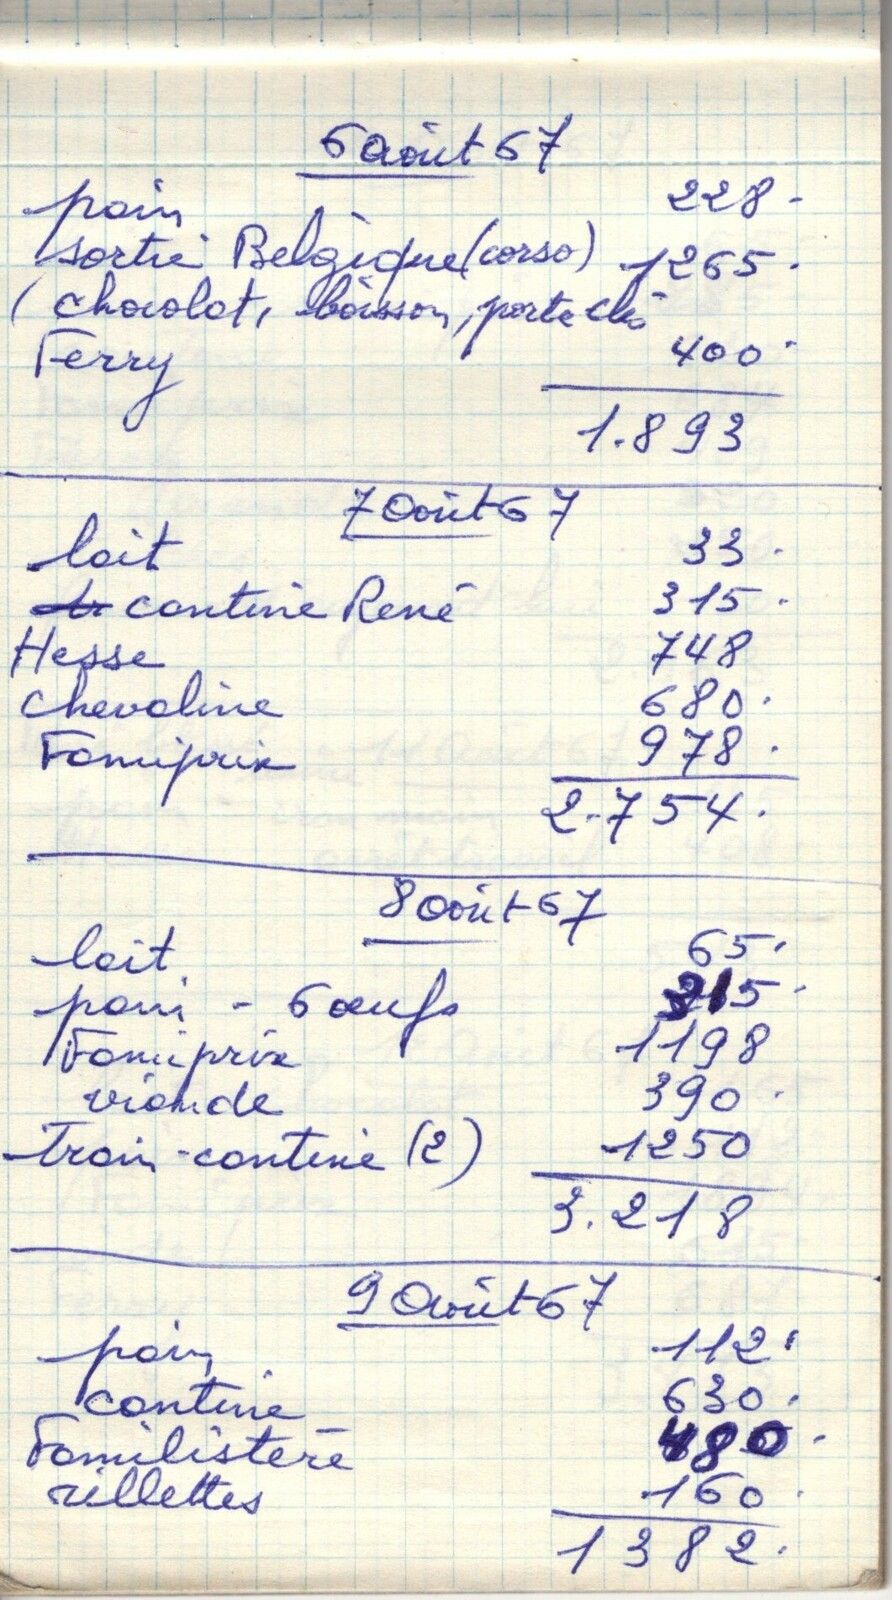 6 août 67
pain 228.
sortie Belgique (corso) 1265.
(chocolat, boisson, porte clé
Ferry 400.
1.893
7 Août 67
lait 33.
cantine René 315.
Hesse 748
chevaline 680.
Famiprix 978.
2.754.
8 août 67
lait 65.
pain - 6 œufs 315.
Famiprix 1198
viande 390.
Train-cantine (2) 1250
3.218
9 Août 67
pain 112.
cantine 630.
Familistère 480.
rillettes 160.
1382.